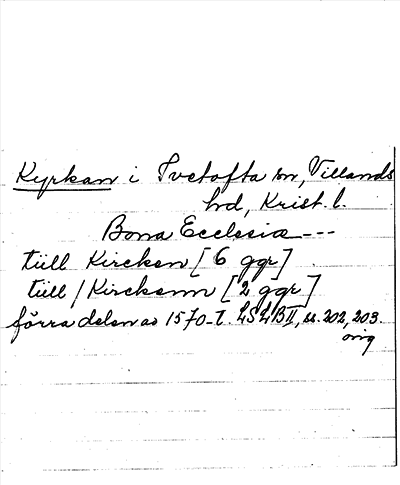 Kyrkan i Ivetofta sn, Villands
hd, Krist. l.
Bona Ecclesiæ ---
tiill Kircken [6 ggr]
tiill / Kirckenn [2 ggr]
förra delen av 1570-t. LSLB II, s. 202, 203.
orig